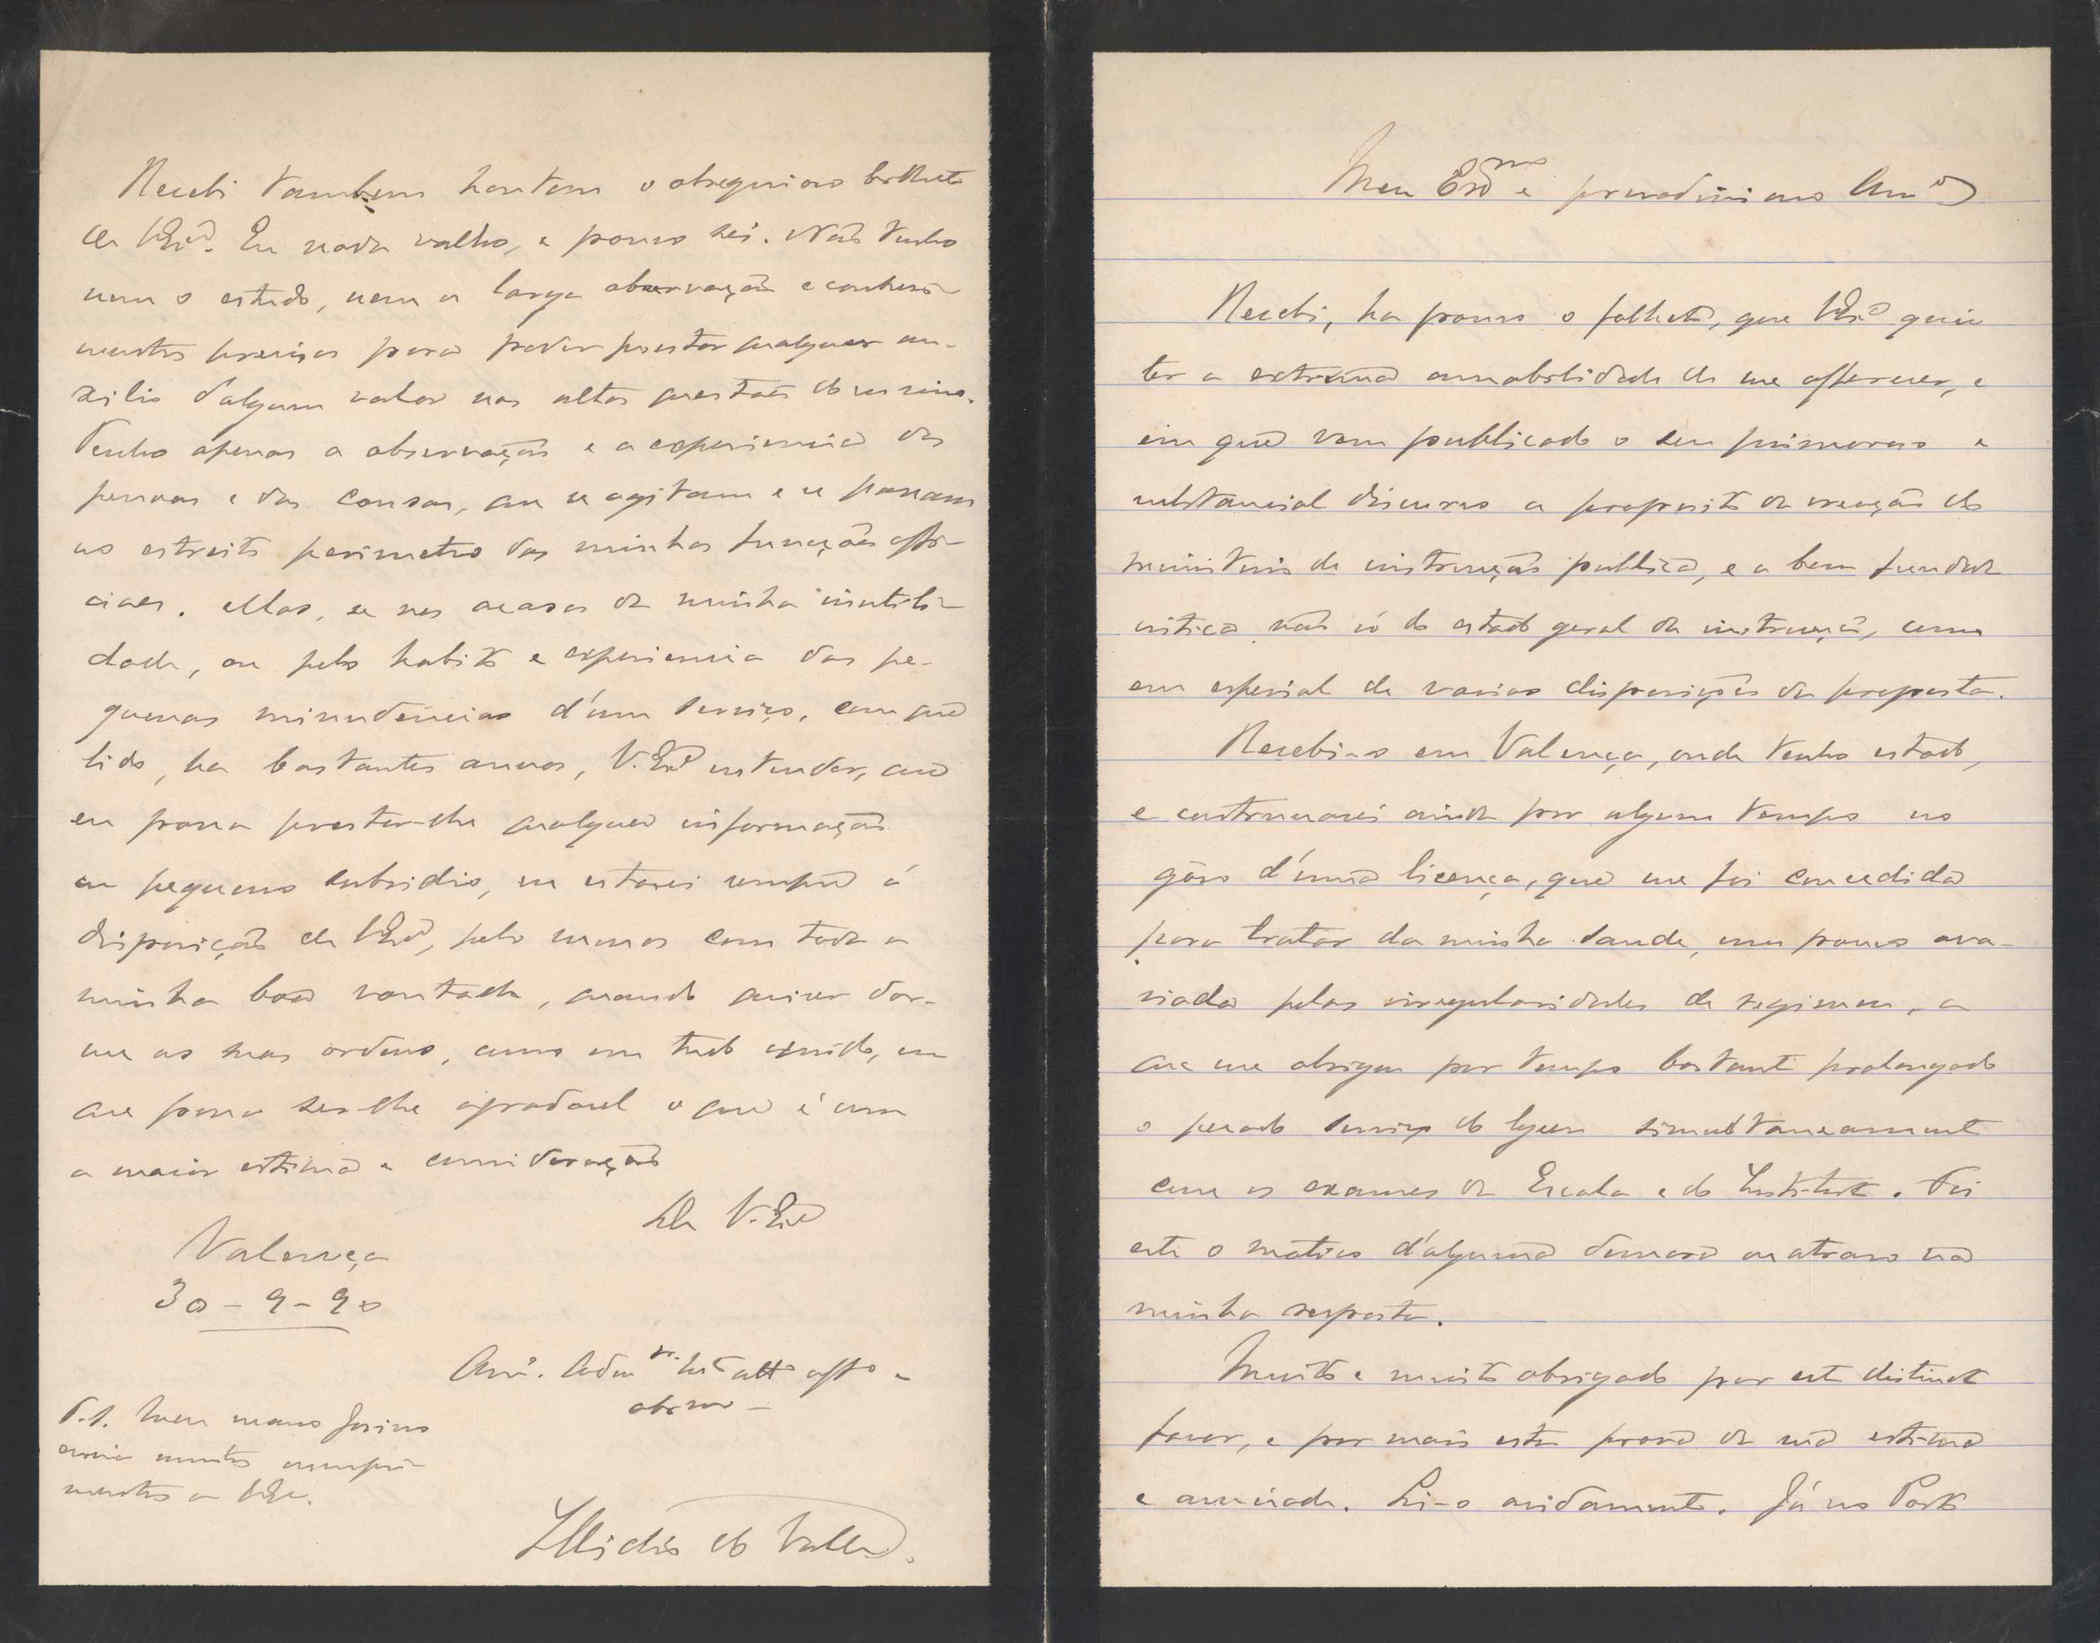 Meu Exmo e presadissimo Amº
Recebi, ha pouco o folheto, que V.Exª quiz
ter a extrema amabilidade de me offerecer, e
em que vem publicado o seu primoroso e
substancial discurso a proposito da creação do
ministerio de instrucção publica, e a bem fundada
critica não só do estado geral da instrucção, como
em especial de varias disposições da proposta.
Recebi-o em Valença, onde tenho estado,
e continuarei ainda por algum tempo no
gôso d'uma licença, que me foi concedida
para tratar da minha saude, um pouco ava-
riada pelas irregularidades de regimen, a
que me obrigou por tempo bastante prolongado
o pesado serviço do lyceu simultaneamente
com os exames da Escola e do Instituto. Foi
este o motivo d'alguma demora ou atraso na
minha resposta.
Muito e muito obrigado por este distincto
favor, e por mais esta prova da sua estima
e amisade. Li-o avidamente. Já no Porto
Recebi tambem hontem o obsequioso bilhete
de V.Exª. Eu nada valho, e pouco sei. Não tenho
nem o estudo, nem a larga observação e conheci-
mentos precisos para poder prestar qualquer au-
xilio d'algum valor nas altas questões do ensino.
Tenho apenas a observação e a experiencia das
pessoas e das cousas, que se agitam e se passam
no estreito perimetro das minhas funcções offi-
ciaes. Mas, se nos acasos da minha inutili-
dade, ou pelo habito e experiencia das pe-
quenas minudencias d'um serviço, com que
lido, ha bastantes annos, V.Exª entender, que
eu possa prestar-lhe qualquer informação
ou pequeno subsidio, eu estarei sempre á
disposição de V.Exª, pelo menos com toda a
minha boa vontade, quando quizer dar-
me as suas ordens, como em tudo o mais, em
que possa ser-lhe agradavel o que é com
a maior estima e consideração
De V.Exª
Valença
30-9-90
Amº. Adm.or. att affº e
obr.mo
P.S. Meu mano Josino
envia muitos cumpri-
mentos a V.Exª.
Illidio do Valle.